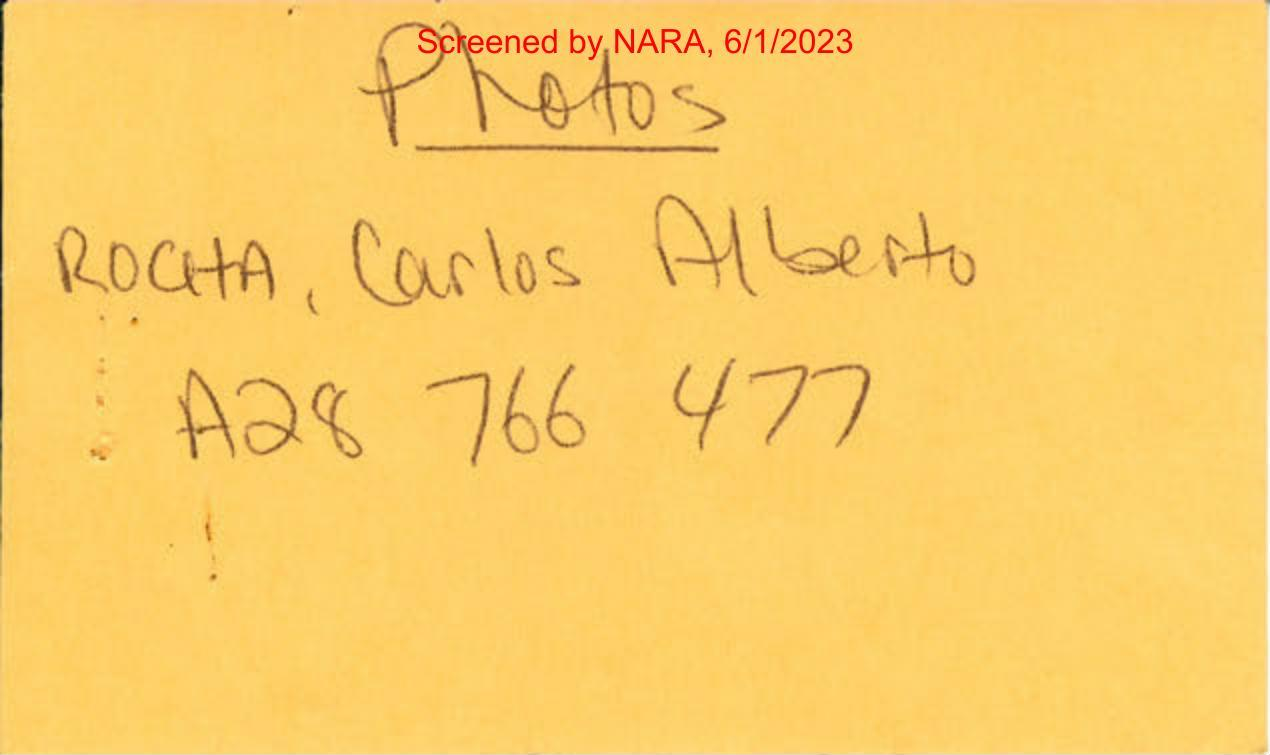 Screened by NARA, 6/1/2023
Photos
ROCHA, Carlos Alberto
A28 766 477